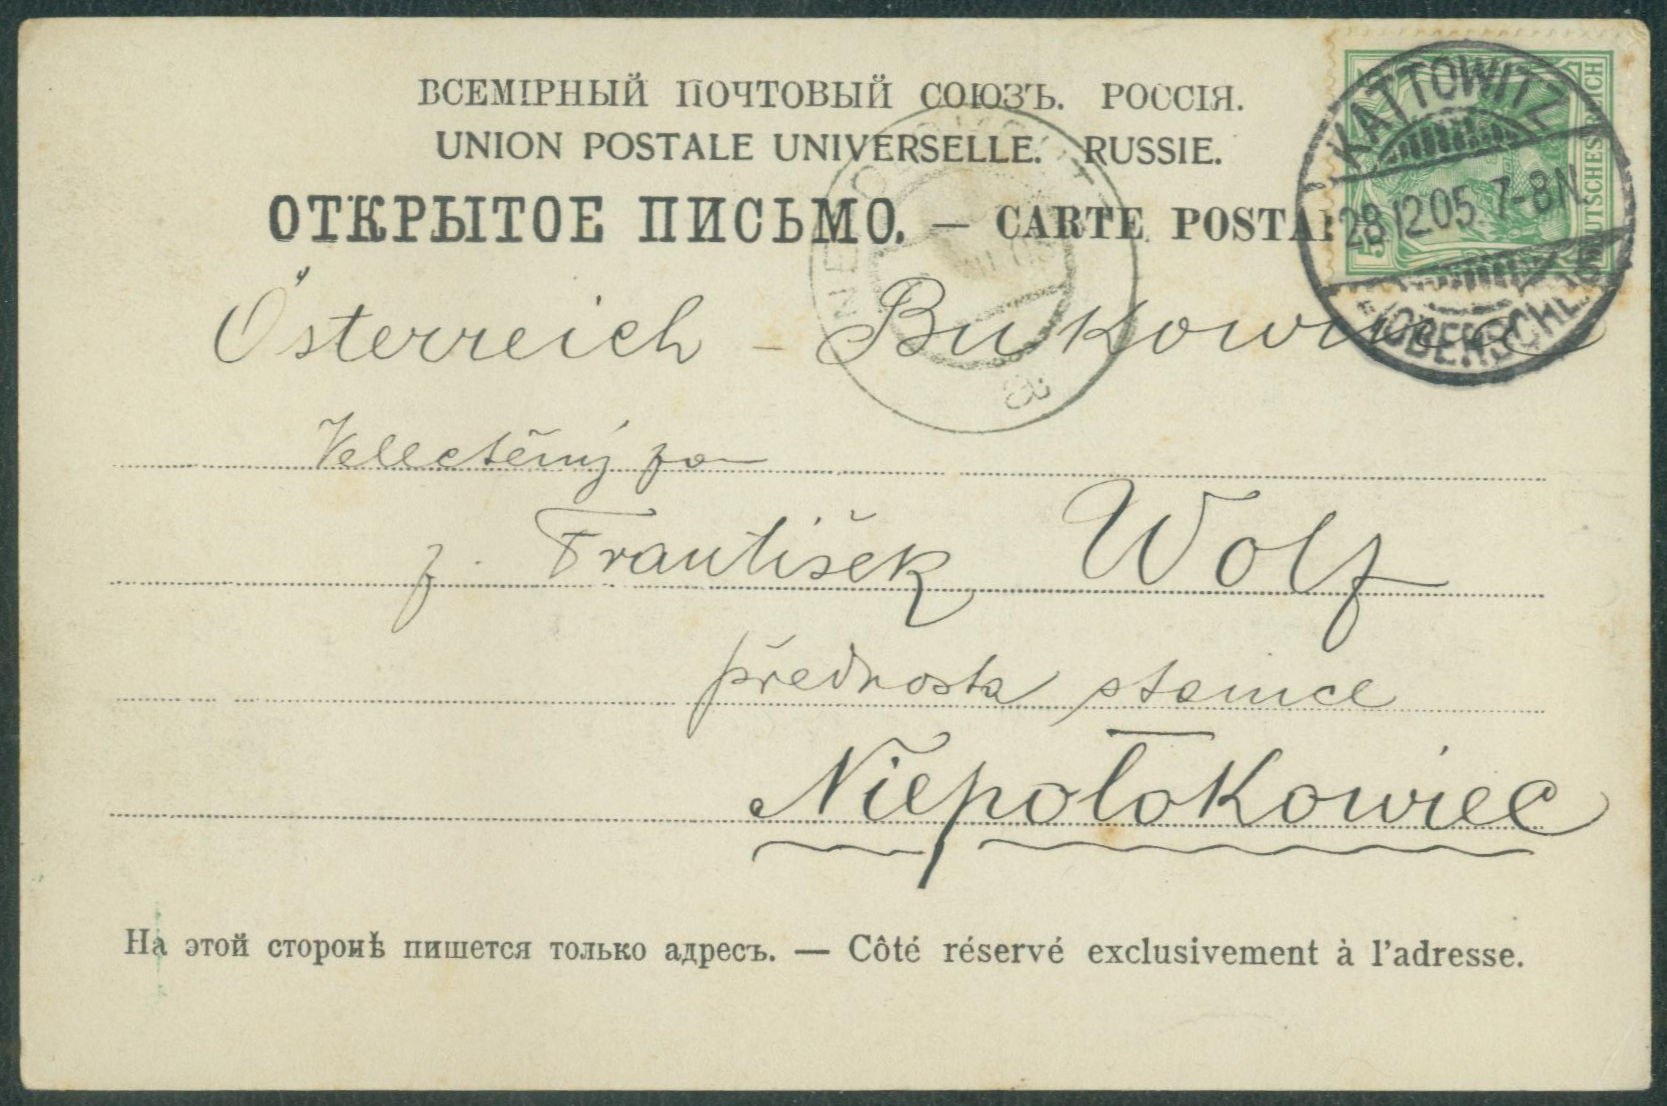 ВСЕМІРНЫЙ ПОЧТОВЫЙ СОЮЗЪ. РОССІЯ.
UNION POSTALE UNIVERSELLE. RUSSIE.
ОТКРЫТОЕ ПИСЬМО. — CARTE POSTA
DEUTSCHES REICH
5
KATTOWITZ
28.12.05. 7-8N.
(OBERSCHL.)
a
Österreich – Bukowina
Velectěný pan
p. František Wolf
přednosta stanice
Niepołokowiec
На этой сторонѣ пишется только адресъ. — Côté réservé exclusivement à l'adresse.